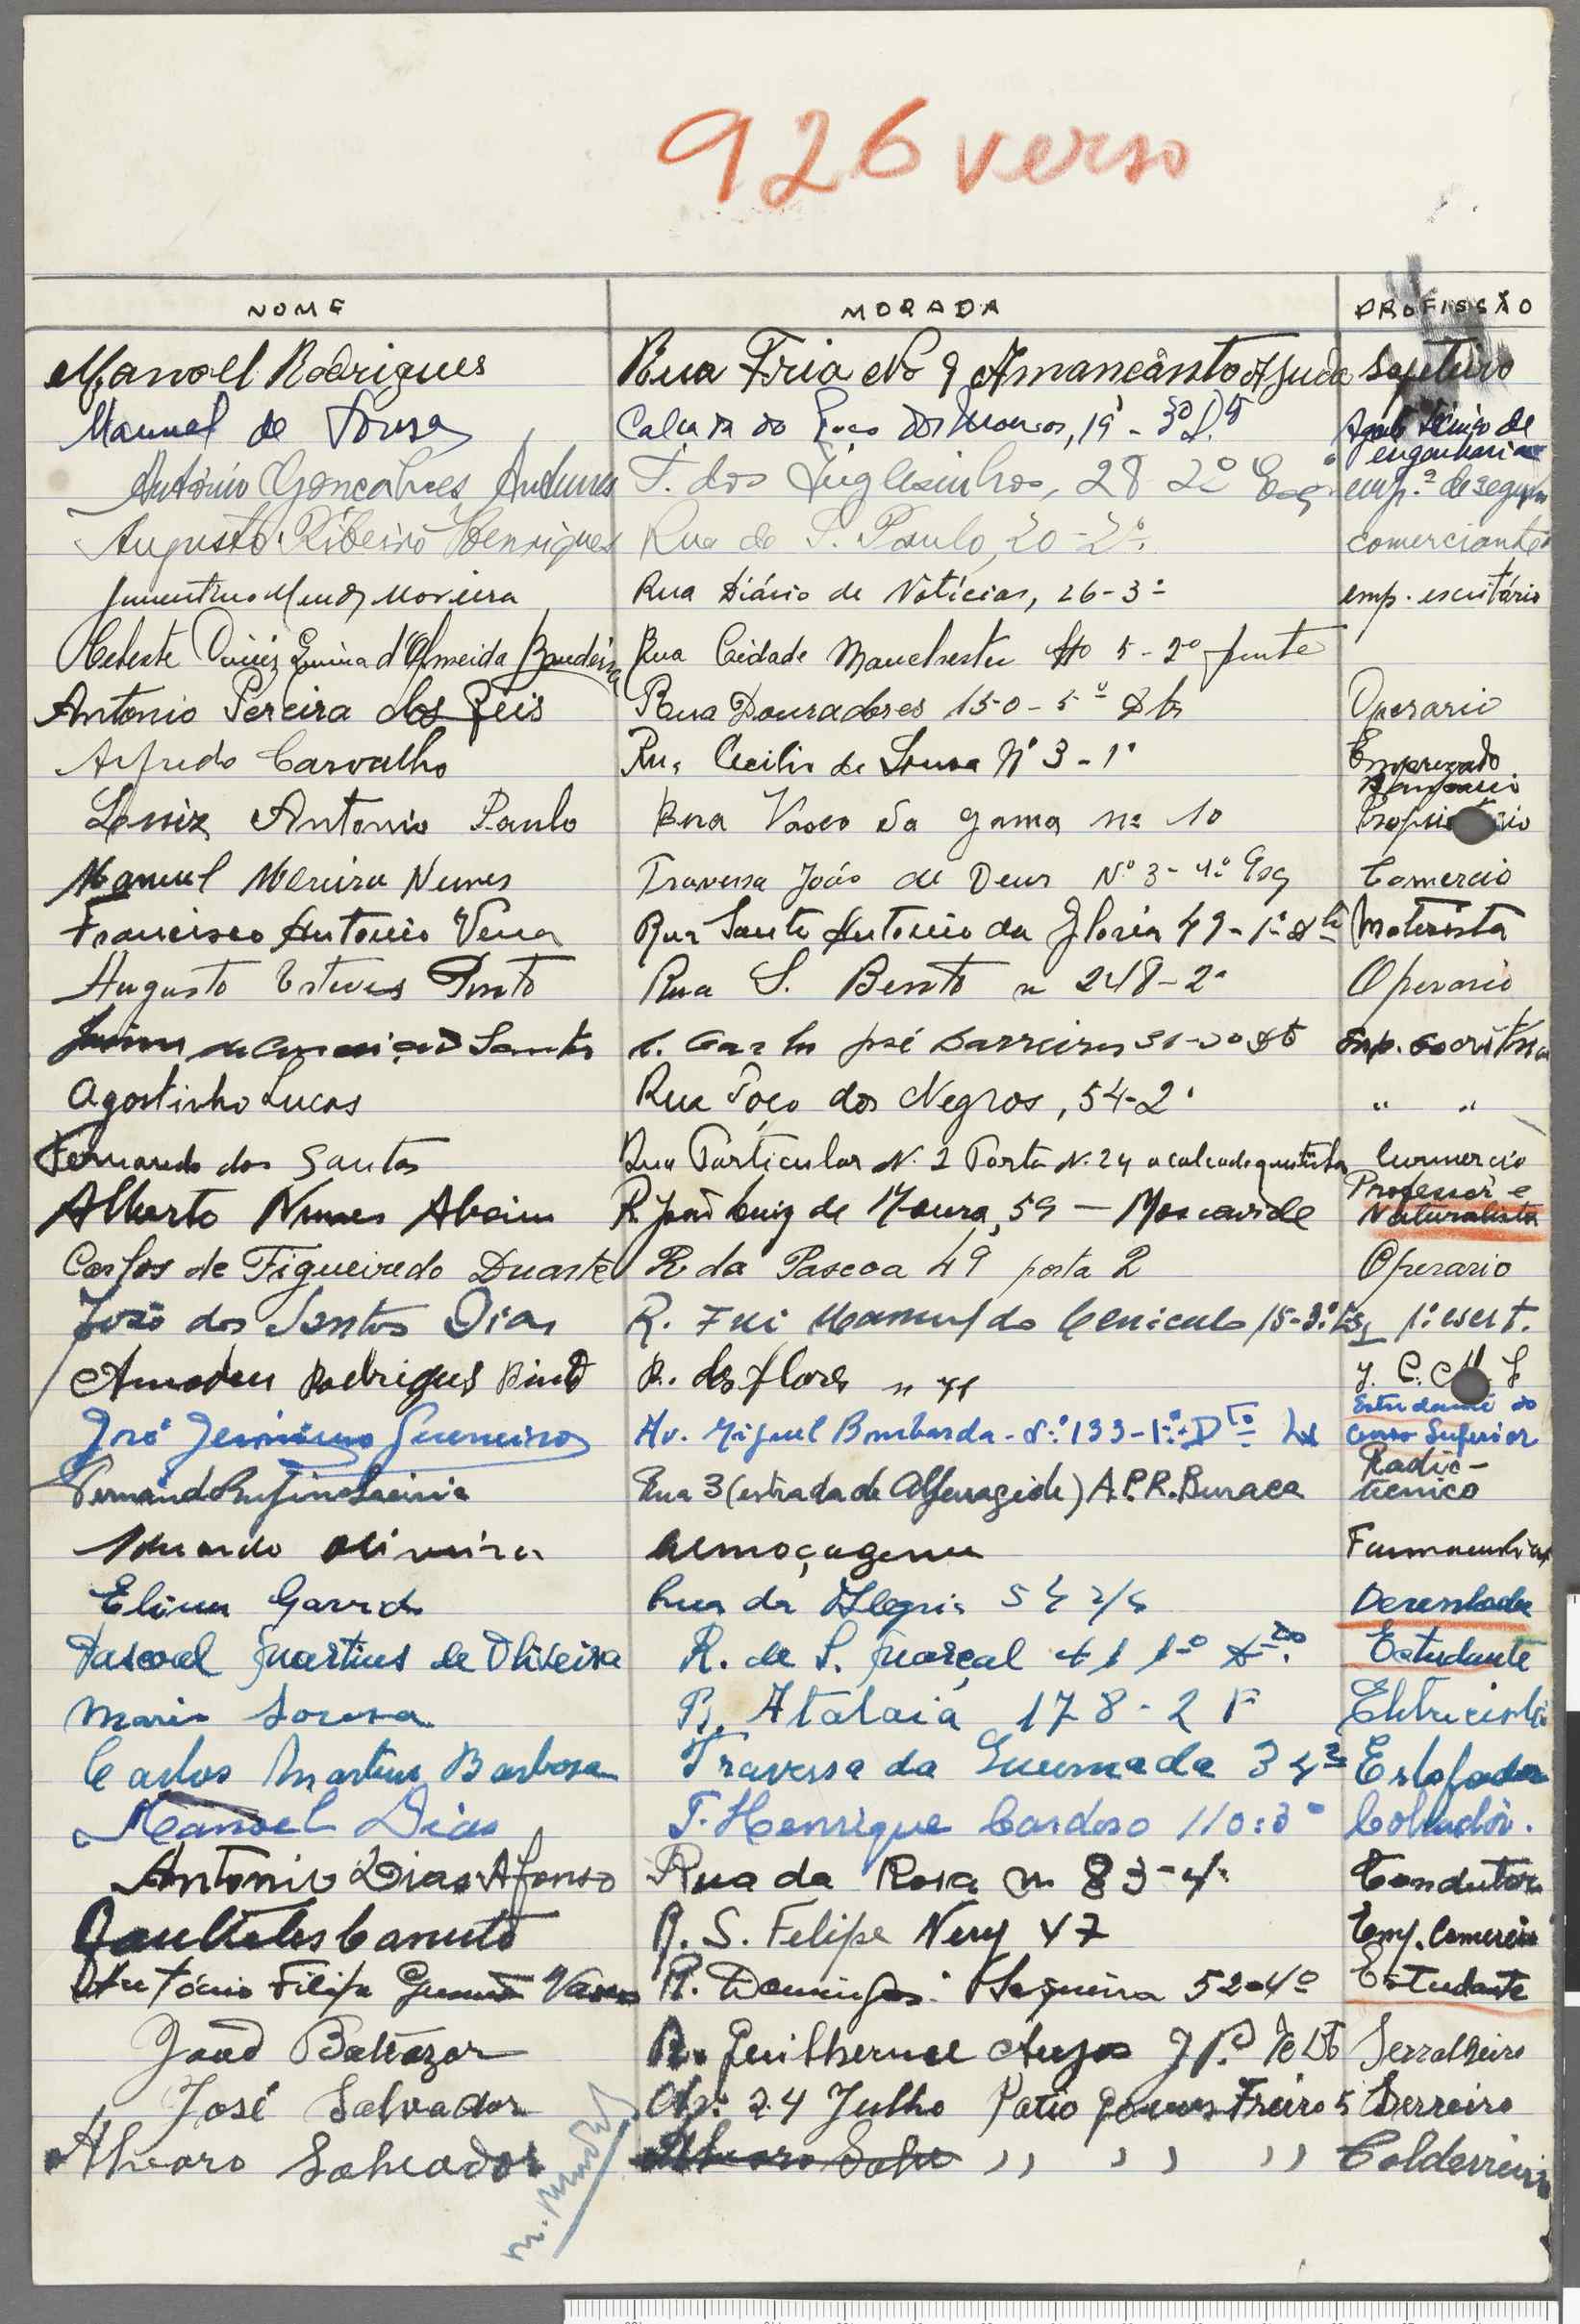 926 verso
NOME MORADA PROFISSÃO
Manoel Rodrigues Rua Fria No 9 Ajuda Sapateiro
Manuel de Sousa Calçada do 19 - 3º Dt Agente técnico de
engenharia
António Gonçalves Antunes T. dos Inglesinhos, 28 2º Esq. emp.º de seguros
Augusto Ribeiro Henriques Rua de S. Paulo, 20-2º comerciante
Juventino Mendes Moreira Rua Diário de Notícias, 26-3º emp. escritório
Celeste d'Almeida Bandeira Rua Cidade Manchester No 5-2º frente
Antonio Pereira dos Reis Rua Douradores 150-5º Dto Operario
Alfredo Carvalho Rua Cecilio de Sousa Nº 3-1º Empregado
Bancario
Luiz Antonio Paulo Rua Vasco da Gama nº 10 Proprietario
Manuel Moreira Nunes Travessa João de Deus Nº 3-4º Esq Comercio
Francisco Antonio Rua Santo Antonio da Gloria 49-1º Dto Motorista
Augusto Esteves Pinto Rua S. Bento n 248-2º Operario
Santos R. Carlos José Barreiros Dto Emp. Escritorio
Agostinho Lucas Rua Poço dos Negros, 54-2º " "
Fernando dos Santos Rua Particular N. 2 Porta N. 24 a calcada quintinha Comercio
Alberto Nunes Aboim R. João Luiz de Moura, 59 — Moscavide Professor e
Naturalista
Carlos de Figueiredo Duarte R. da Pascoa 49 porta 2 Operario
João dos Santos Dias R. Frei Manuel do Cenículo 15-3º Esq 1º escrt.
Amadeu Rodrigues Pinto R. das flores n 71
José Jerónimo Guerreiro Av. Miguel Bombarda - Nº 133-1º-Dto Lx Estudante do
Curso Superior
Fernando Rufino Rua 3 (estrada de Alfragide) A.P.R. Buraca Radio-
técnico
Eduardo Oliveira Almoçageme
Garrido Rua da Alegria Desenhador
Pascoal Martins de Oliveira R. de S. Marçal 41 1º Dto. Estudante
Mario R. Atalaia 178-2 F Eletricista
Carlos Martins Barbosa Travessa da Queimada 34 2º Estofador
Manoel Dias T. Henrique Cardoso 110:3º Cobrador.
Antonio Dias Afonso Rua da Rosa n 83-4º Condutor
Canuto R. S. Felipe Nery 47 Emp. Comercio
António Filipe R. Domingos Sequeira 52-4º Estudante
João Baltazar R. Guilherme Anjos Serralheiro
José Salvador Av. 24 Julho Patio Gomes Freire 5 Serreiro
Alvaro Salvador " " " Caldereiro